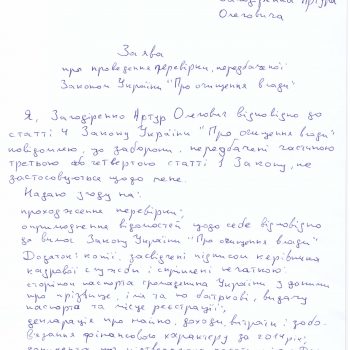 Олеговича
Заява
про проведення перевірки, передбаченої
Законом України "Про очищення влади"
Я, Загоренко Артур Олегович відповідно до
статті 4 Закону України "Про очищення влади"
повідомляю, що заборони, передбачені частиною
третьою або четвертою статті 1 Закону, не
застосовуються щодо мене.
Надаю згоду на:
проходження перевірки;
оприлюднення відомостей щодо себе відповідно
до вимог Закону України "Про очищення влади"
Додатки: копії, засвідчені підписом керівника
кадрової служби і скріплені печаткою:
сторінок паспорта громадянина України з даними
про прізвище, ім'я та по батькові, видачу
паспорта та місце реєстрації;
декларація про майно, доходи, витрати і зобо-
в'язання фінансового характеру за 2014 рік;